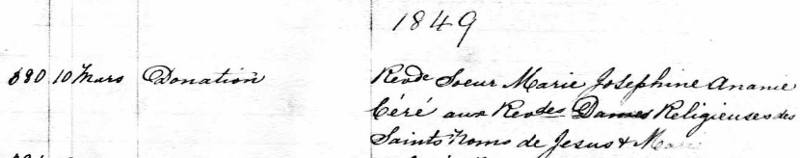 1849
680 10 Mars Donation Revde Soeur Marie Josephine Ananie
Céré aux Revdes Dames Religieuses des
Saints Noms de Jesus &